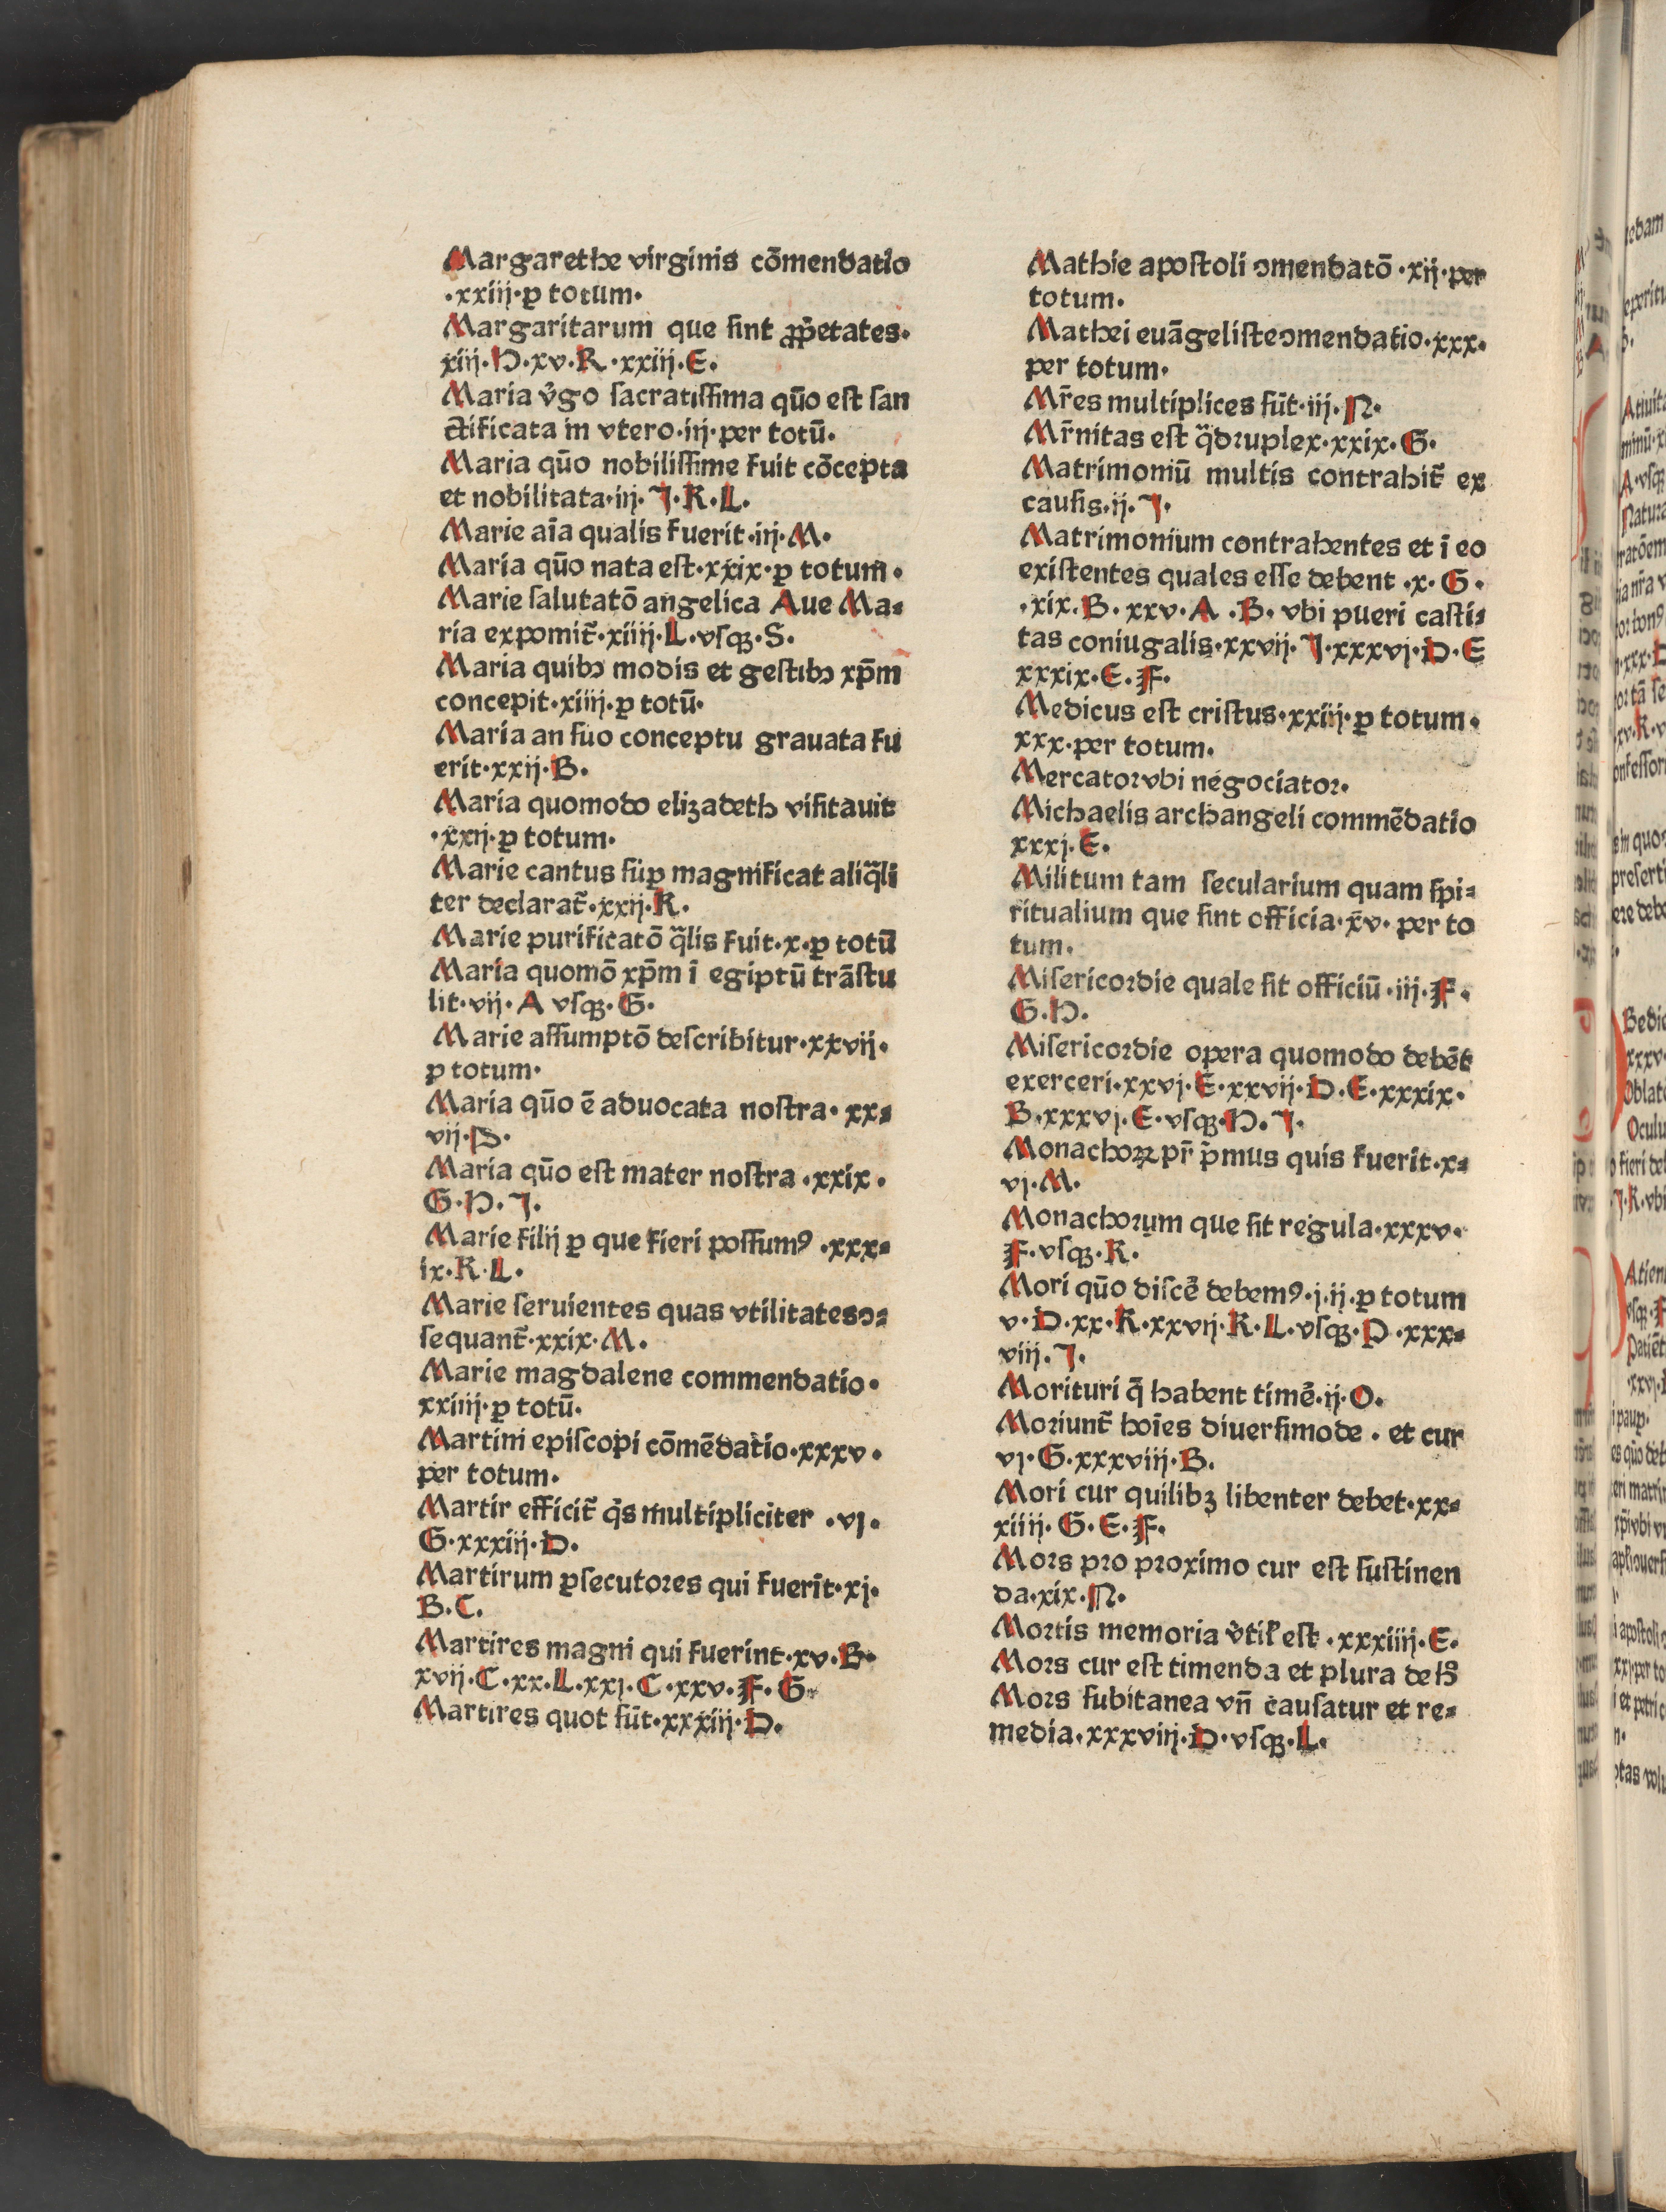 Margarethe virginis cõmendatio
·xxiij·ꝑ totum·
Margaritarum que ſint ꝓp̃etates·
xiij·H·xv·K·xxiij·E·
Maria v̓go ſacratiſſima qũo eſt ſan
ctificata in vtero·iij·per totũ·
Maria qũo nobiliſſime fuit cõcepta
et nobilitata·iij·J·K·L·
Marie aĩa qualis fuerit·iij·M·
Maria qũo nata eſt·xxix·ꝑ totum·
Marie ſalutatõ angelica Aue Ma⸗
ria exponit̃·xiiij·L·vſqꝫ·S·
Maria quibꝰ modis et geſtibꝰ xp̃m
concepit·xiiij·ꝑ totũ·
Maria an ſuo conceptu grauata fu
erit·xxij·B·
Maria quomodo elizabeth viſitauit
·xxij·ꝑ totum·
Marie cantus ſuꝑ magnificat aliq̃li
ter declarat̃·xxij·K·
Marie purificatõ q̃lis fuit·x·ꝑ totũ
Maria quomõ xp̃m ĩ egiptũ trãſtu
lit·vij·A vſqꝫ·G·
Marie aſſumptõ deſcribitur·xxvij·
ꝑ totum·
Maria qũo ẽ aduocata noſtra·xx⸗
vij·P·
Maria qũo eſt mater noſtra·xxix·
G·H·J·
Marie filij ꝑ que fieri poſſumꝰ·xxx⸗
ix·K·L·
Marie ſeruientes quas vtilitates ↄ⸗
ſequant̃·xxix·M·
Marie magdalene commendatio·
xxiiij·ꝑ totũ·
Martini epiſcopi cõmẽdatio·xxxv·
per totum·
Martir efficit̃ q̃s multipliciter·vj·
G·xxxiij·D·
Martirum ꝑſecutores qui fuerĩt·xj·
B·C·
Martires magni qui fuerint·xv·B·
xvij·C·xx·L·xxj·C·xxv·F·G·
Martires quot ſũt·xxxiij·D·
Mathie apoſtoli ↄmendatõ·xij·per
totum·
Mathei euãgeliſte ↄmendatio·xxx·
per totum·
Mr̃es multiplices ſũt·iij·N·
Mr̃nitas eſt q̃druplex·xxix·G·
Matrimoniũ multis contrahit̃ ex
cauſis·ij·J·
Matrimonium contrahentes et ĩ eo
exiſtentes quales eſſe debent·x·G·
·xix·B·xxv·A·B·vbi pueri caſti⸗
tas coniugalis·xxvij·J·xxxvj·D·E
xxxix·E·F·
Medicus eſt criſtus·xxiij·ꝑ totum·
xxx·per totum·
Mercator vbi negociator·
Michaelis archangeli commẽdatio
xxxj·E·
Militum tam ſecularium quam ſpi⸗
ritualium que ſint officia·xv·per to
tum·
Miſericordie quale ſit officiũ·iij·F·
G·H·
Miſericordie opera quomodo debẽt
exerceri·xxvj·E·xxvij·D·E·xxxix·
B·xxxvj·E·vſqꝫ·H·J·
Monachoꝝ pr̃ p̃mus quis fuerit·x⸗
vj·M·
Monachorum que ſit regula·xxxv·
F·vſqꝫ·K·
Mori qũo diſcẽ debemꝰ·j·ij·ꝑ totum
v·D·xx·K·xxvij·K·L·vſqꝫ·P·xxx⸗
viij·J·
Morituri q̃ habent timẽ·ij·O·
Moriunt̃ hoĩes diuerſimode·et cur
vj·G·xxxviij·B·
Mori cur quilibꝫ libenter debet·xx⸗
xiiij·G·E·F·
Mors pro proximo cur eſt ſuſtinen
da·xix·N·
Mortis memoria v̓til̃ eſt·xxxiiij·E·
Mors cur eſt timenda et plura de h̊
Mors ſubitanea vñ cauſatur et re⸗
media·xxxviij·D·vſqꝫ·L·